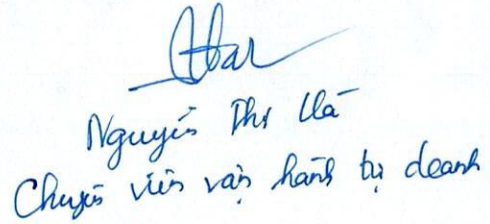 Nguyễn Thị Hà
Chuyên viên vận hành tự doanh